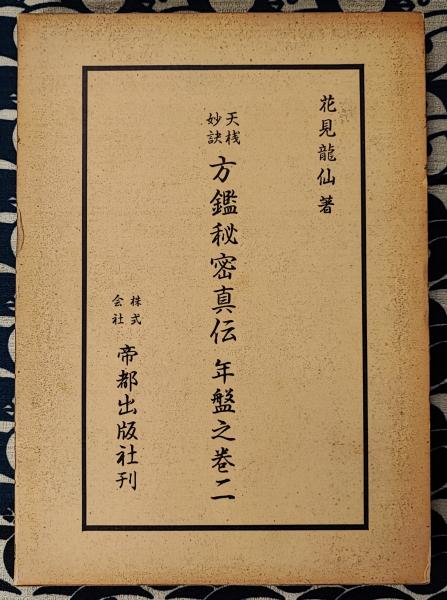 花見龍仙著
天機妙訣
方鑑秘密真伝 年盤之巻二
株式会社
帝都出版社刊